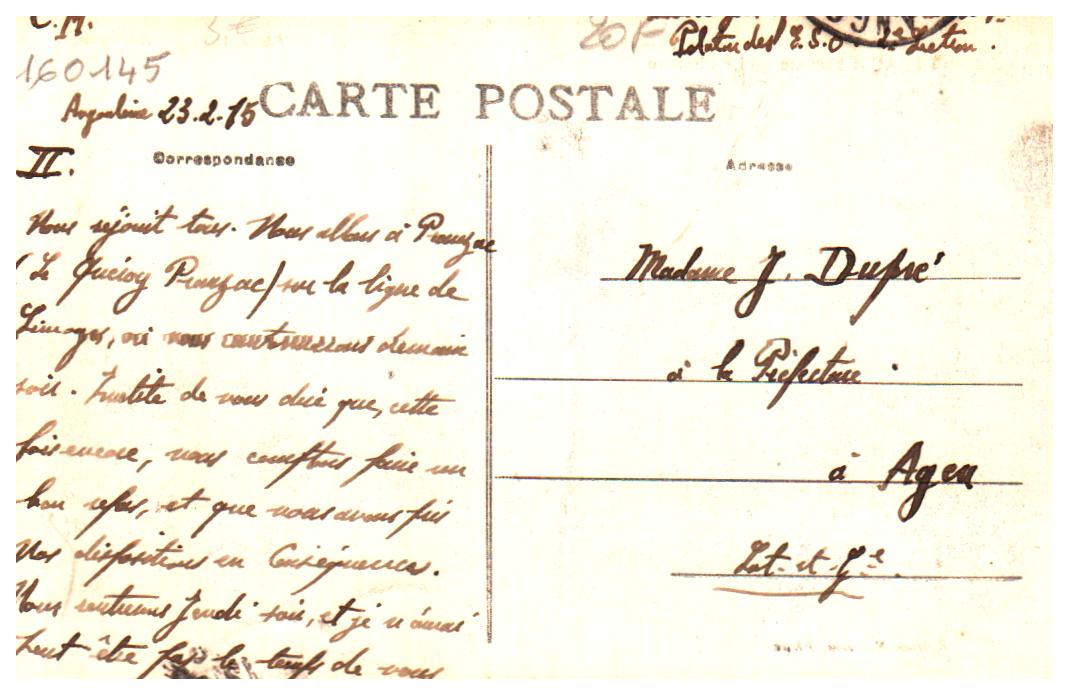 C.M.
3 €
20F
Peloton des E.S.O. 2e Section.
160145
Angoulême 23.2.15
CARTE POSTALE
II.
Correspondance
Adresse
Nous réjouit tous. Nous allons à Pranzac
(Le Quéroy Pranzac) sur la ligne de
Limoges, où nous cantonnerons demain
soir. Inutile de vous dire que, cette
fois encore, nous comptons faire un
bon repas, et que nous avons pris
Nos dispositions en Conséquence.
Nous rentrerons Jeudi soir, et je n'aurai
Peut être pas le temps de vous
Madame J. Dupré
à la Préfecture.
à Agen
Lot-et-Gne.